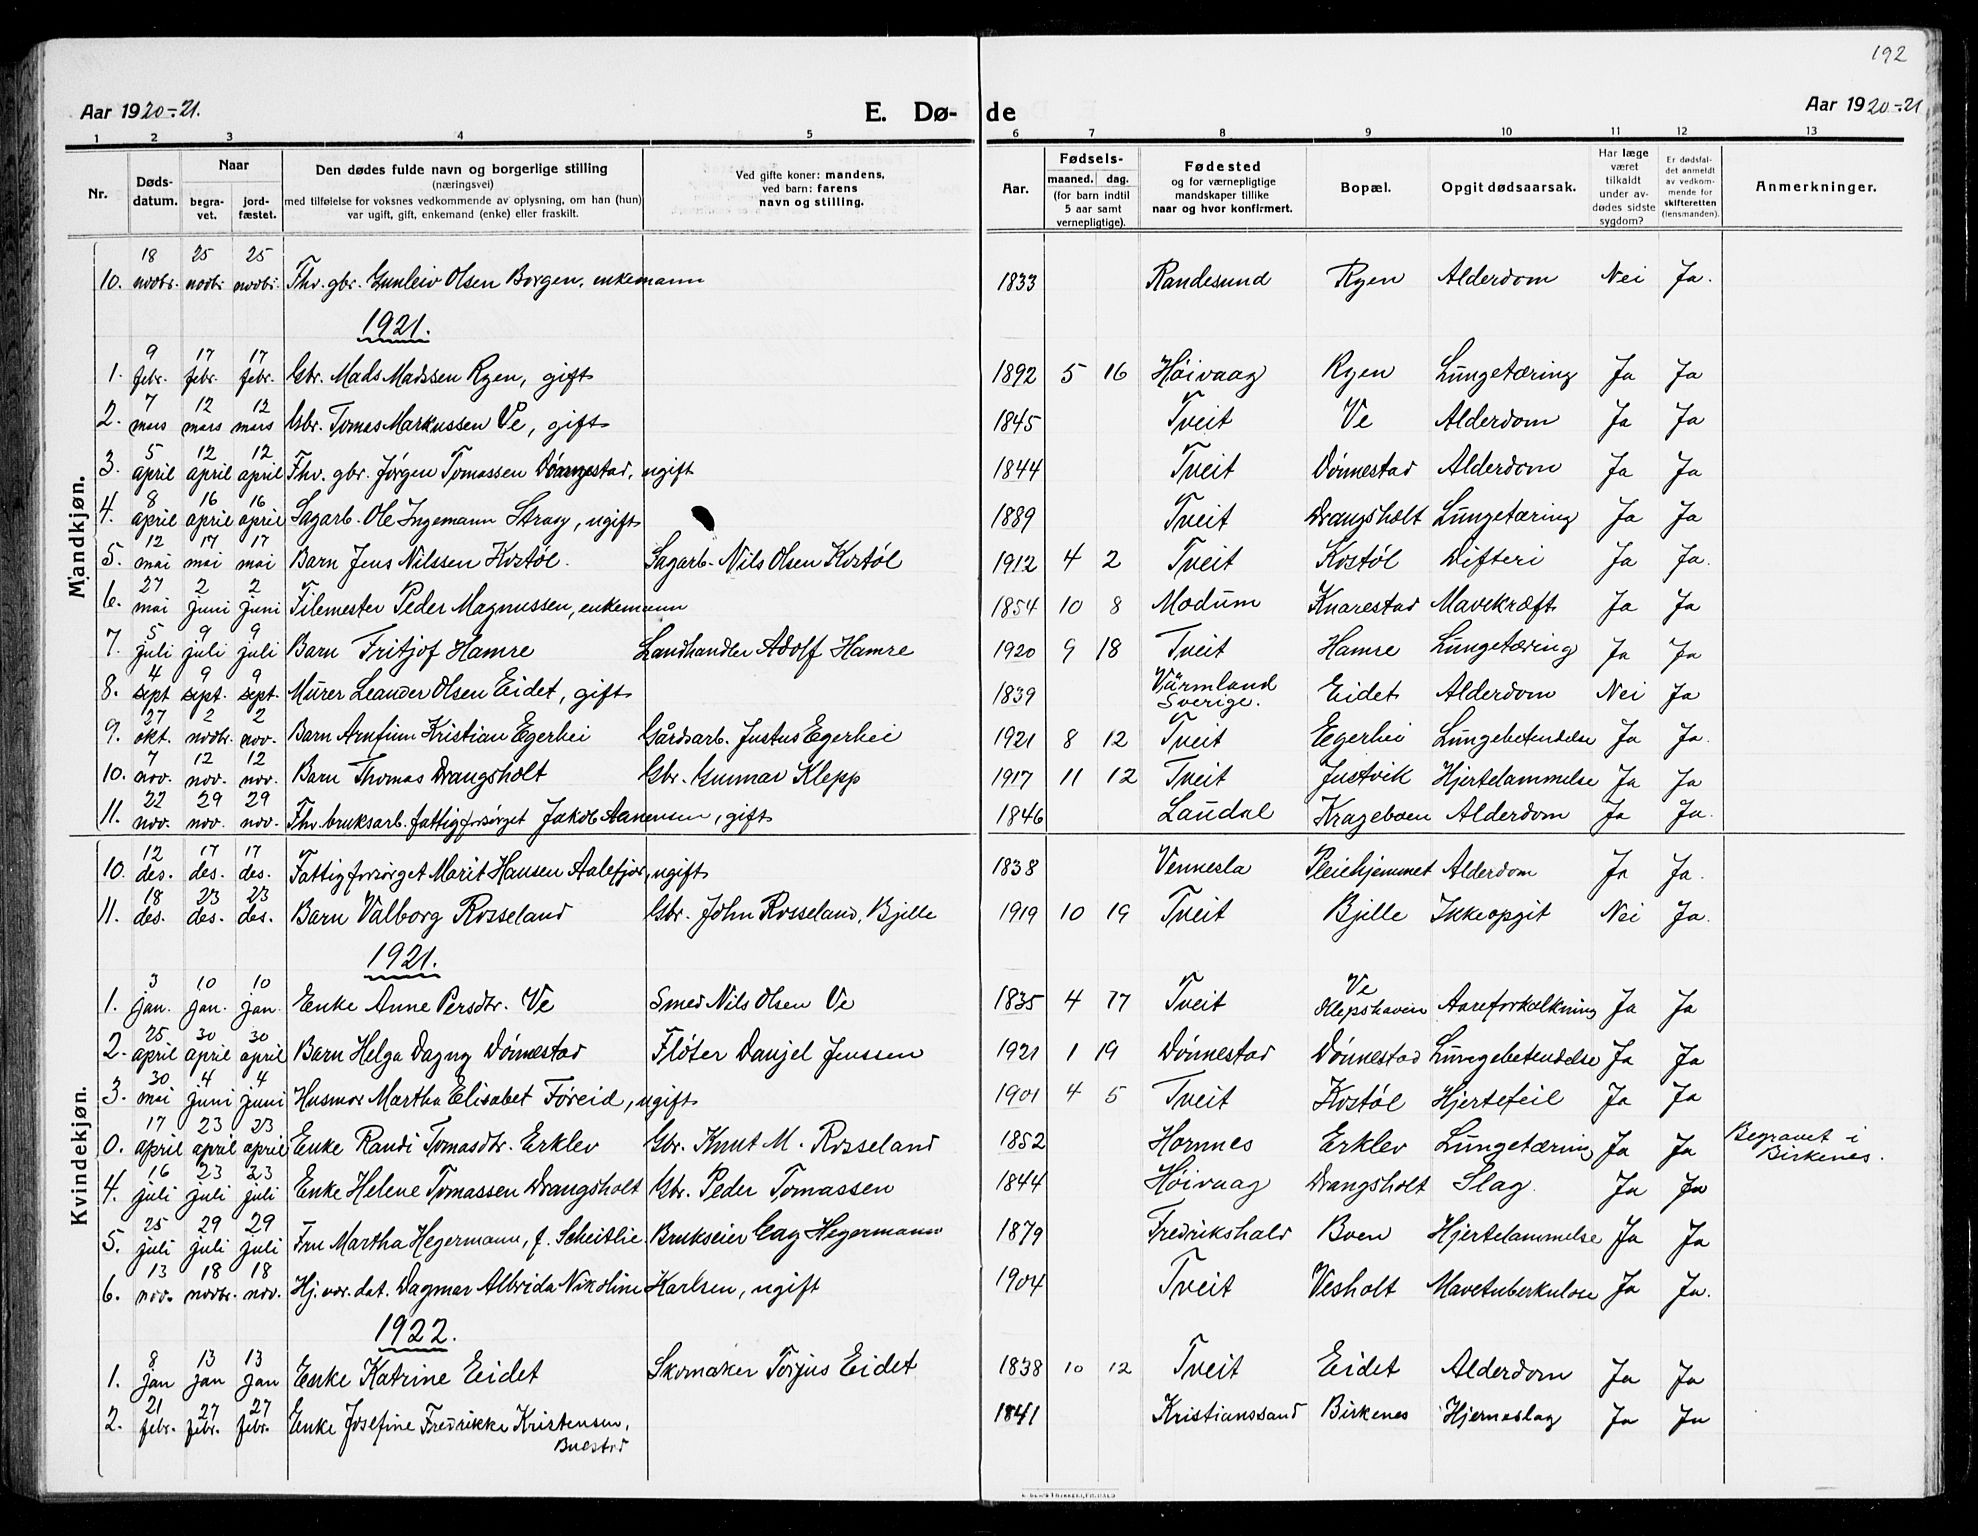 192
Aar 1920-21. E. Dø- de Aar 1920-21
1 2 3 4 5 6 7 8 9 10 11 12 13
Nr. Døds-datum. Naar begra-vet. jord-fæstet. Den dødes fulde navn og borgerlige stilling (næringsvei) med tilføielse for voksnes vedkommende av oplysning, om han (hun) var ugift, gift, enkemand (enke) eller fraskilt. Ved gifte koner: mandens, ved barn: farens navn og stilling. Aar. Fødsels- maaned. dag. (for barn indtil 5 aar samt vernepligtige). Fødested og for værnepligtige mandskaper tillike naar og hvor konfirmert. Bopæl. Opgit dødsaarsak. Har læge været tilkaldt under av-dødes sidste sygdom? Er dødsfal-det anmeldt av vedkom-mende for skifteretten (lensmanden). Anmerkninger.
Mandkjøn.
10. 18 novbr. 25 novbr. 25 novbr. Fhv. gbr. Gunleiv Olsen Borgen, enkemann 1833 Randesund Ryen Alderdom Nei Ja.
1921.
1. 9 febr. 17 febr. 17 febr. Gbr. Mads Madssen Ryen, gift 1892 5 16 Høivaag Ryen Lungetæring Ja Ja
2. 7 mars 12 mars 12 mars Gbr. Tomas Markussen Ve, gift 1845 Tveit Ve Alderdom Ja Ja
3. 5 april 12 april 12 april Fhv. gbr. Jørgen Tomassen Dønnestad, ugift 1844 Tveit Dønnestad Alderdom Ja Ja
4. 8 april 16 april 16 april Sagarb. Ole Ingemann Stray, ugift 1889 Tveit Drangsholt Lungetæring Ja Ja
5. 12 mai 17 mai 17 mai Barn Jens Nilssen Kostøl. Sagarb. Nils Olsen Kostøl 1912 4 2 Tveit Kostøl Difteri Ja Ja.
6. 27 mai 2 juni 2 juni Filemester Peder Magnussen, enkemann 1854 10 8 Modum Knarestad Mavekræft Ja Ja
7. 5 juli 9 juli 9 juli Barn Fritjof Hamre Landhandler Adolf Hamre 1920 9 18 Tveit Hamre Lungetæring Ja Ja
8. 4 sept 9 sept. 9 sept. Murer Leander Olsen Eidet, gift 1839 Värmland Sverige. Eidet Alderdom Nei Ja
9. 27 okt. 2 novbr. 2 nov. Barn Arnfinn Kristian Egerhei Gårdsarb. Justus Egerhei 1921 8 12 Tveit Egerhei Lungebetendelse Ja Ja.
10. 7 nov. 12 nov. 12 nov. Barn Thomas Drangsholt Gbr. Gunnar Klepp 1917 11 12 Tveit Justvik Hjertelammelse Ja Ja
11. 22 nov. 29 nov. 29 nov. Fhv. bruksarb. fattigforsørget Jakob Aanensen, gift 1846 Laudal Krageboen Alderdom Ja Ja.
Kvindekjøn.
10. 12 des. 17 des. 17 des. Fattigforsørget Marit Hansen Aalefjær, ugift 1838 Vennesla Pleiehjemmet Alderdom Ja Ja.
11. 18 des. 23 des. 23 des. Barn Valborg Rosseland Gbr. John Rosseland, Bjelle 1919 10 19 Tveit Bjelle Ikke opgit Nei Ja.
1921.
1. 3 jan. 10 jan. 10 jan. Enke Anne Persdtr. Ve Smed Nils Olsen Ve 1835 4 17 Tveit Ve Klepshaven Aareforkalkning Ja Ja
2. 25 april 30 april 30 april Barn Helga Dagny Dønnestad Fløter Danjel Jenssen 1921 1 19 Dønnestad Dønnestad Lungebetendelse Ja Ja
3. 30 mai 4 juni 4 juni Husmor Martha Elisabet Føreid, ugift 1901 4 5 Tveit Kostøl Hjertefeil Ja Ja
0. 17 april 23 april 23 april Enke Randi Tomasdtr. Erklev Gbr. Knut M. Rosseland 1852 Hornnes Erklev Lungetæring Ja Ja Begravet i Birkenes.
4. 16 juli 23 juli 23 juli Enke Helene Tomassen Drangsholt Gbr. Peder Tomassen 1844 Høivaag Drangsholt Slag. Ja Ja
5. 25 juli 29 juli 29 juli Fru Martha Hegermann, f. Scheitlie Brukseier Cay Hegermann 1879 Fredrikshald Boen Hjertelammelse Ja Ja
6. 13 nov. 18 novbr. 18 nov. Hj. vær. dat. Dagmar Albrida Nikoline Karlsen, ugift 1904 Tveit Vesholt Mavetuberkulose Ja Ja.
1922.
1. 8 jan 13 jan 13 jan Enke Katrine Eidet Skomaker Torjus Eidet 1838 10 12 Tveit Eidet Alderdom Ja Ja
2. 21 febr. 27 febr. 27 febr. Enke Josefine Fredrikke Kristensen, Buestad 1841 Kristianssand Birkenes Hjerneslag Ja Ja